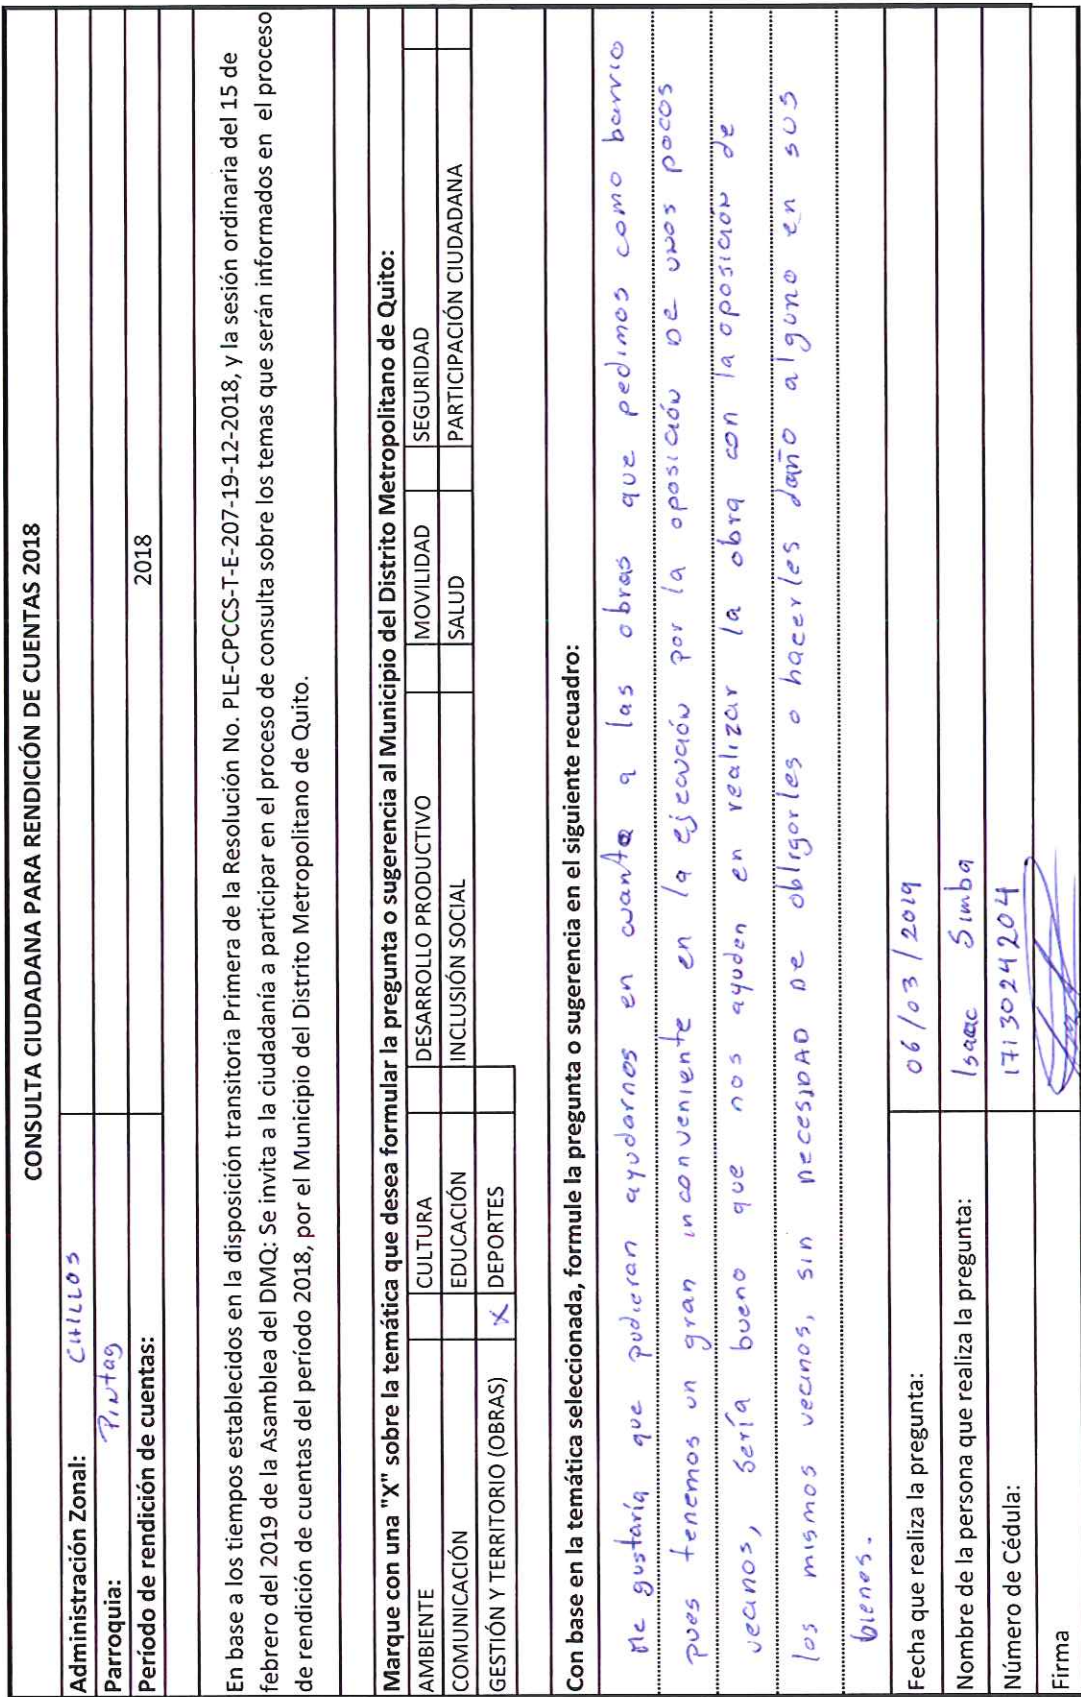 CONSULTA CIUDADANA PARA RENDICIÓN DE CUENTAS 2018
Administración Zonal: CHILLOS
Parroquia: Pintag
Período de rendición de cuentas: 2018
En base a los tiempos establecidos en la disposición transitoria Primera de la Resolución No. PLE-CPCCS-T-E-207-19-12-2018, y la sesión ordinaria del 15 de
febrero del 2019 de la Asamblea del DMQ: Se invita a la ciudadanía a participar en el proceso de consulta sobre los temas que serán informados en el proceso
de rendición de cuentas del período 2018, por el Municipio del Distrito Metropolitano de Quito.
Marque con una "X" sobre la temática que desea formular la pregunta o sugerencia al Municipio del Distrito Metropolitano de Quito:
AMBIENTE CULTURA DESARROLLO PRODUCTIVO MOVILIDAD SEGURIDAD
COMUNICACIÓN EDUCACIÓN INCLUSIÓN SOCIAL SALUD PARTICIPACIÓN CIUDADANA
GESTIÓN Y TERRITORIO (OBRAS) X DEPORTES
Con base en la temática seleccionada, formule la pregunta o sugerencia en el siguiente recuadro:
Me gustaría que pudieran ayudarnos en cuanto a las obras que pedimos como barrio
pues tenemos un gran inconveniente en la ejecución por la oposición de unos pocos
vecinos, sería bueno que nos ayuden en realizar la obra con la oposición de
los mismos vecinos, sin necesidad de obligarles o hacerles daño alguno en sus
bienes.
Fecha que realiza la pregunta: 06/03/2019
Nombre de la persona que realiza la pregunta: Isaac Simba
Número de Cédula: 1713024204
Firma